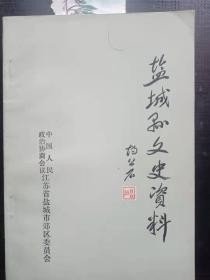 盐城縣文史资料
胡公石
中国人民
政治协商会议
江苏省盐城市郊区委员会